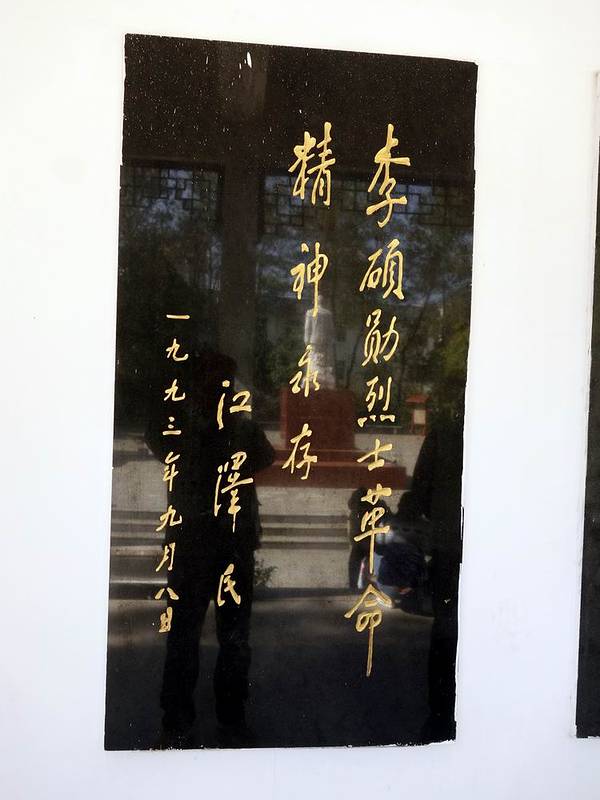 李硕勋烈士革命
精神永存
江泽民
一九九三年九月八日